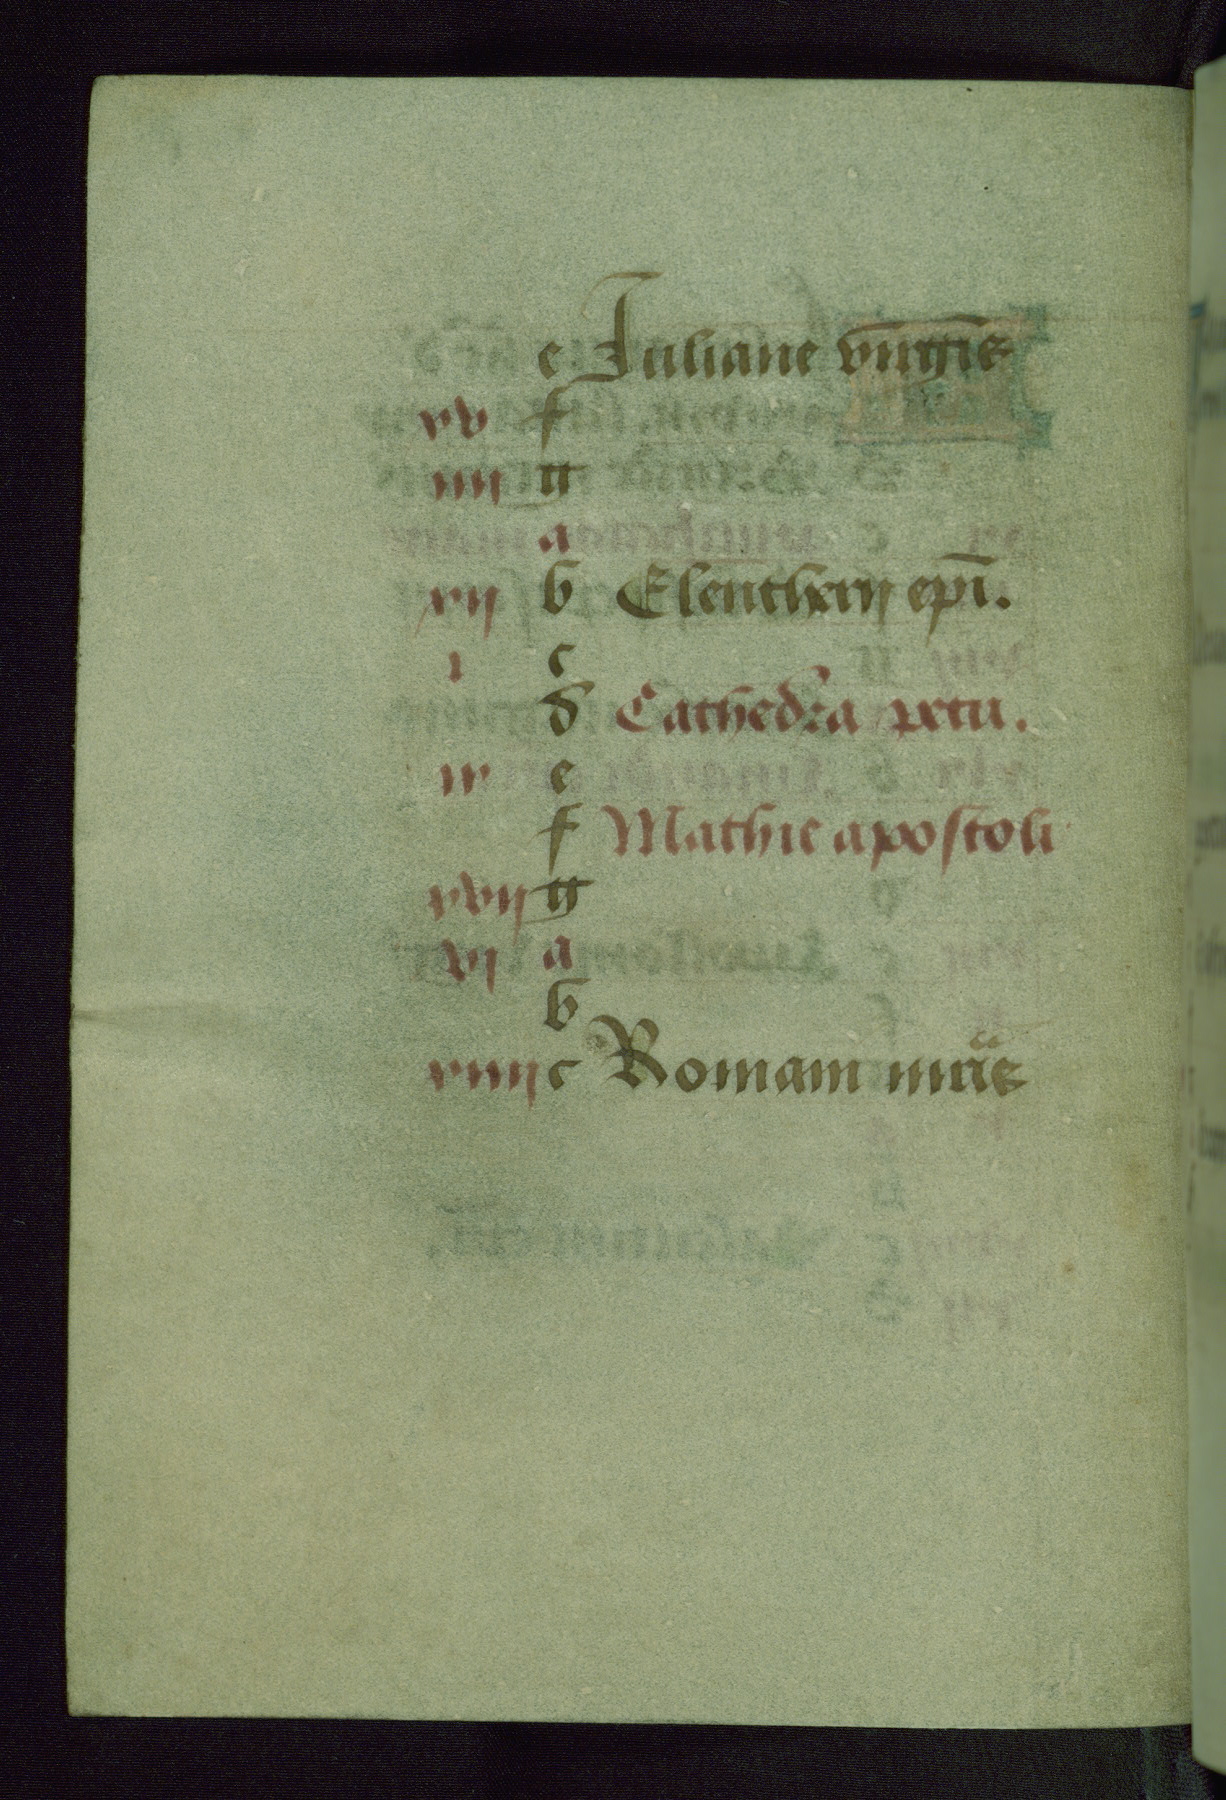 e Juliane virginis
xv f
iiii g
a
xii b Eleutherij epi.
i c
d Cathedra petri.
ix e
f Mathie apostoli
xvii g
vi a
b
xiiii c Romani mris